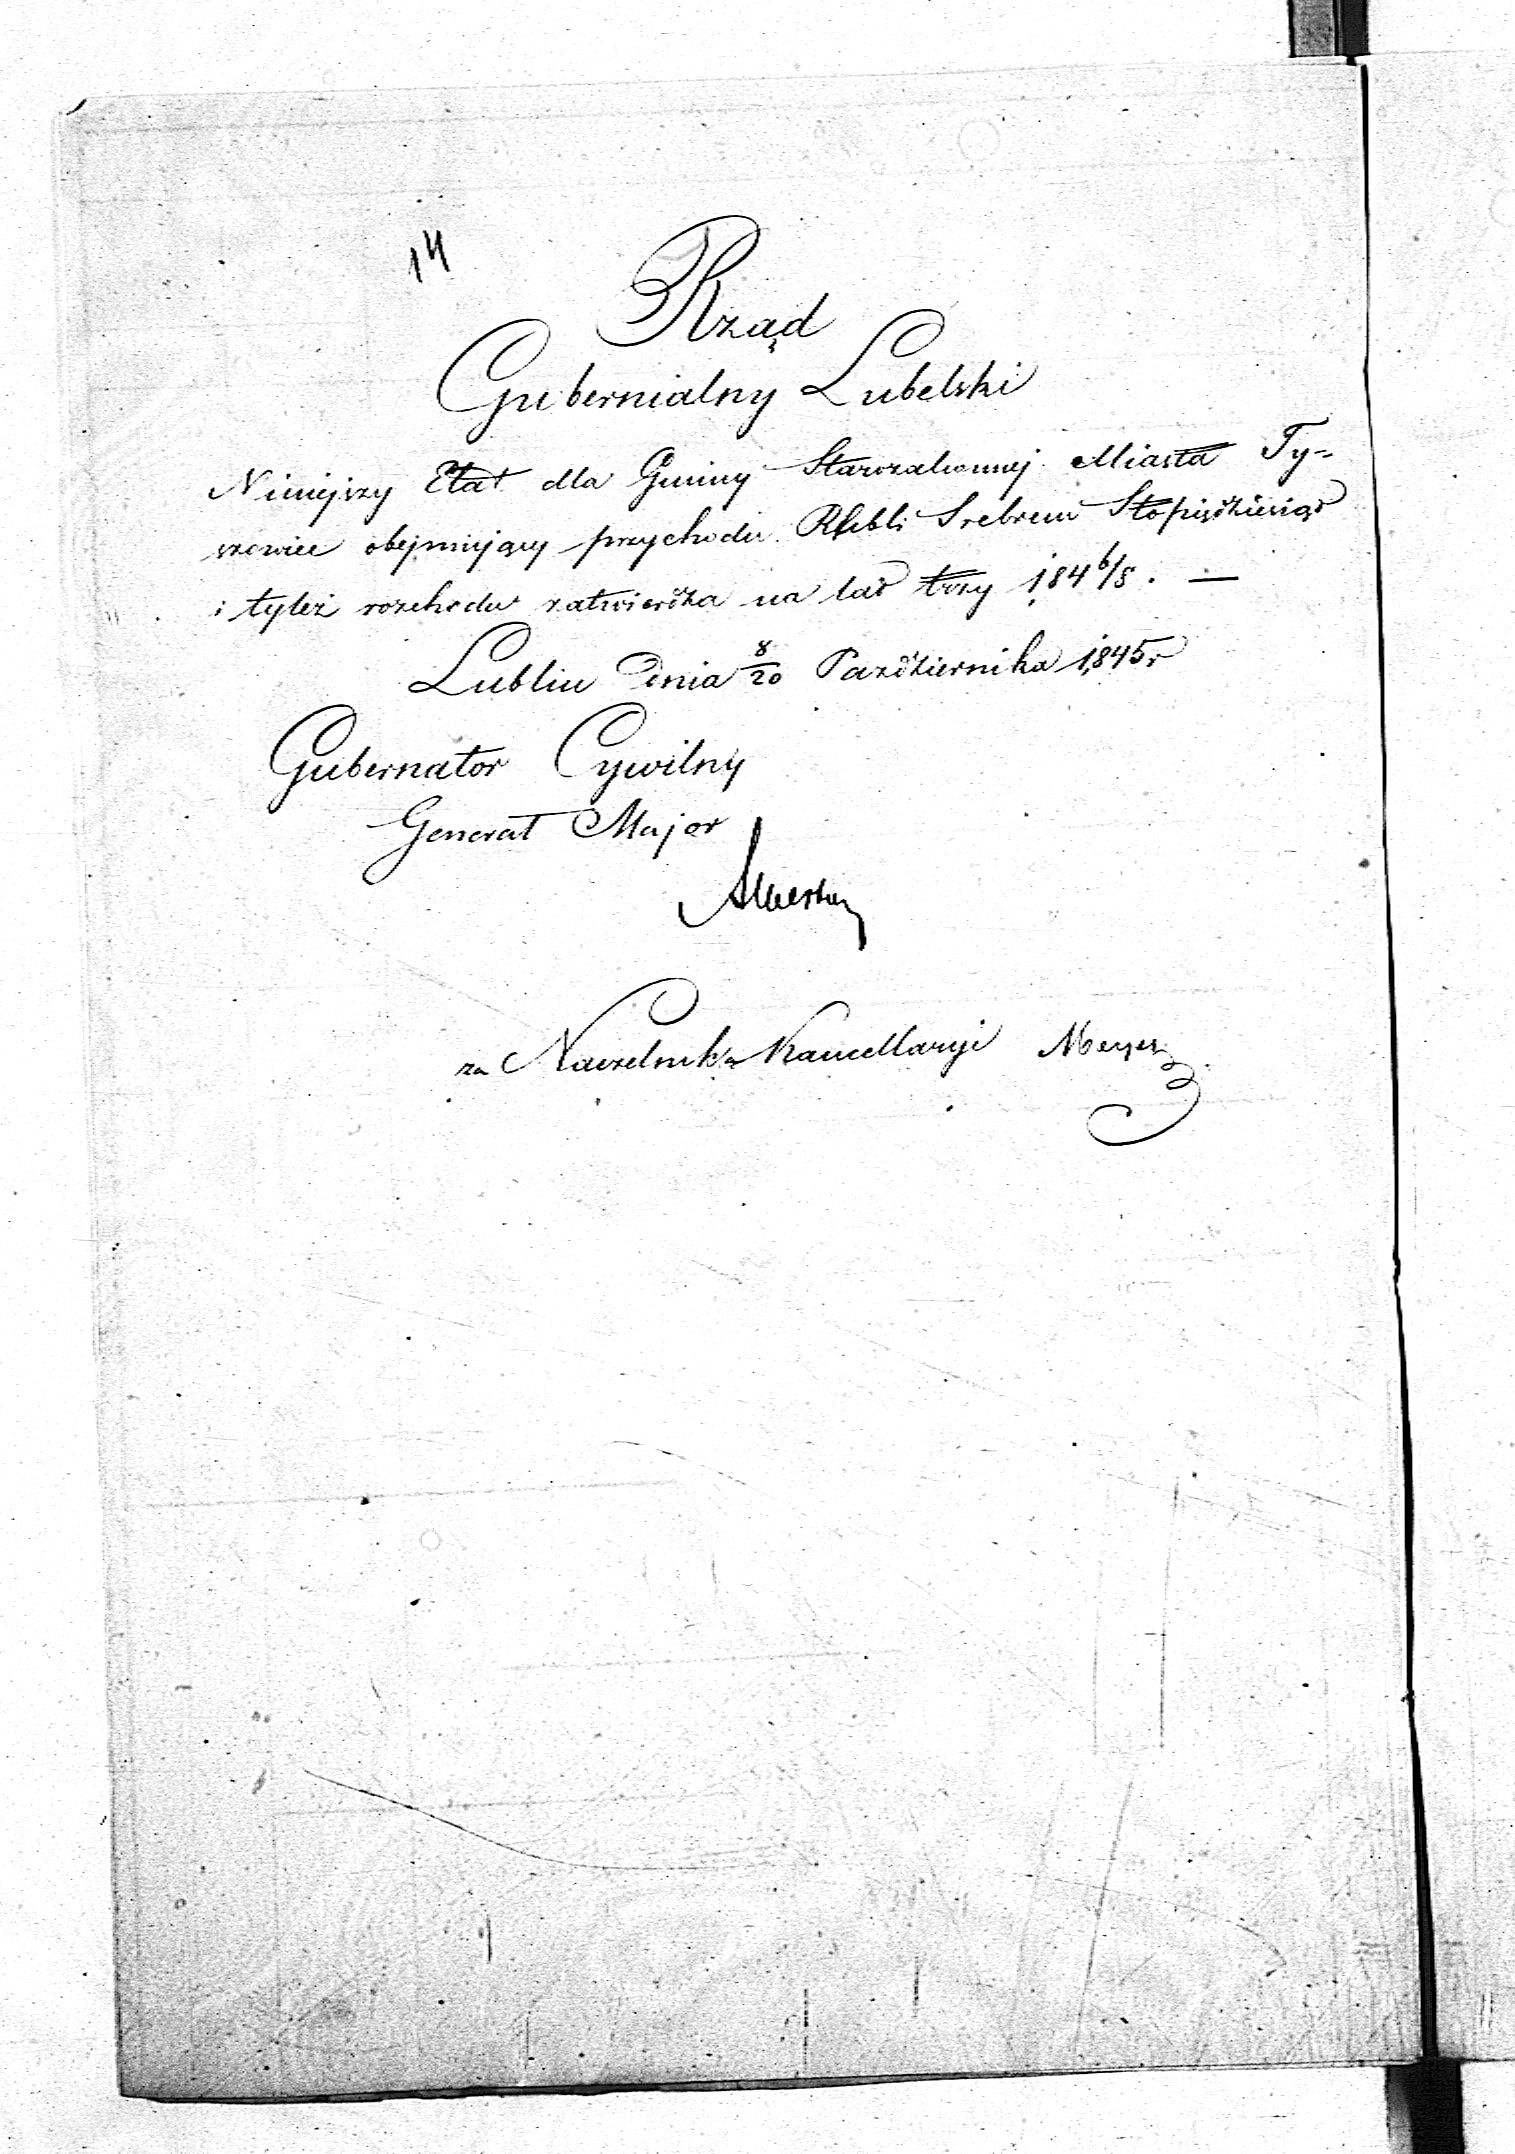 14
Rząd
Gubernialny Lubelski
Niniejszy Etat dla Gminy Starozakonnej Miasta Ty-
szowiec obejmujący przychodu Rubli Srebrem Stopięćdziesiąt
i tyleż rozchodu zatwierdza na lat trzy 1846/8. —
Lublin Dnia 8/20 Października 1845 r
Gubernator Cywilny
Generał Major
za Naczelnika Kancellaryi Meyer